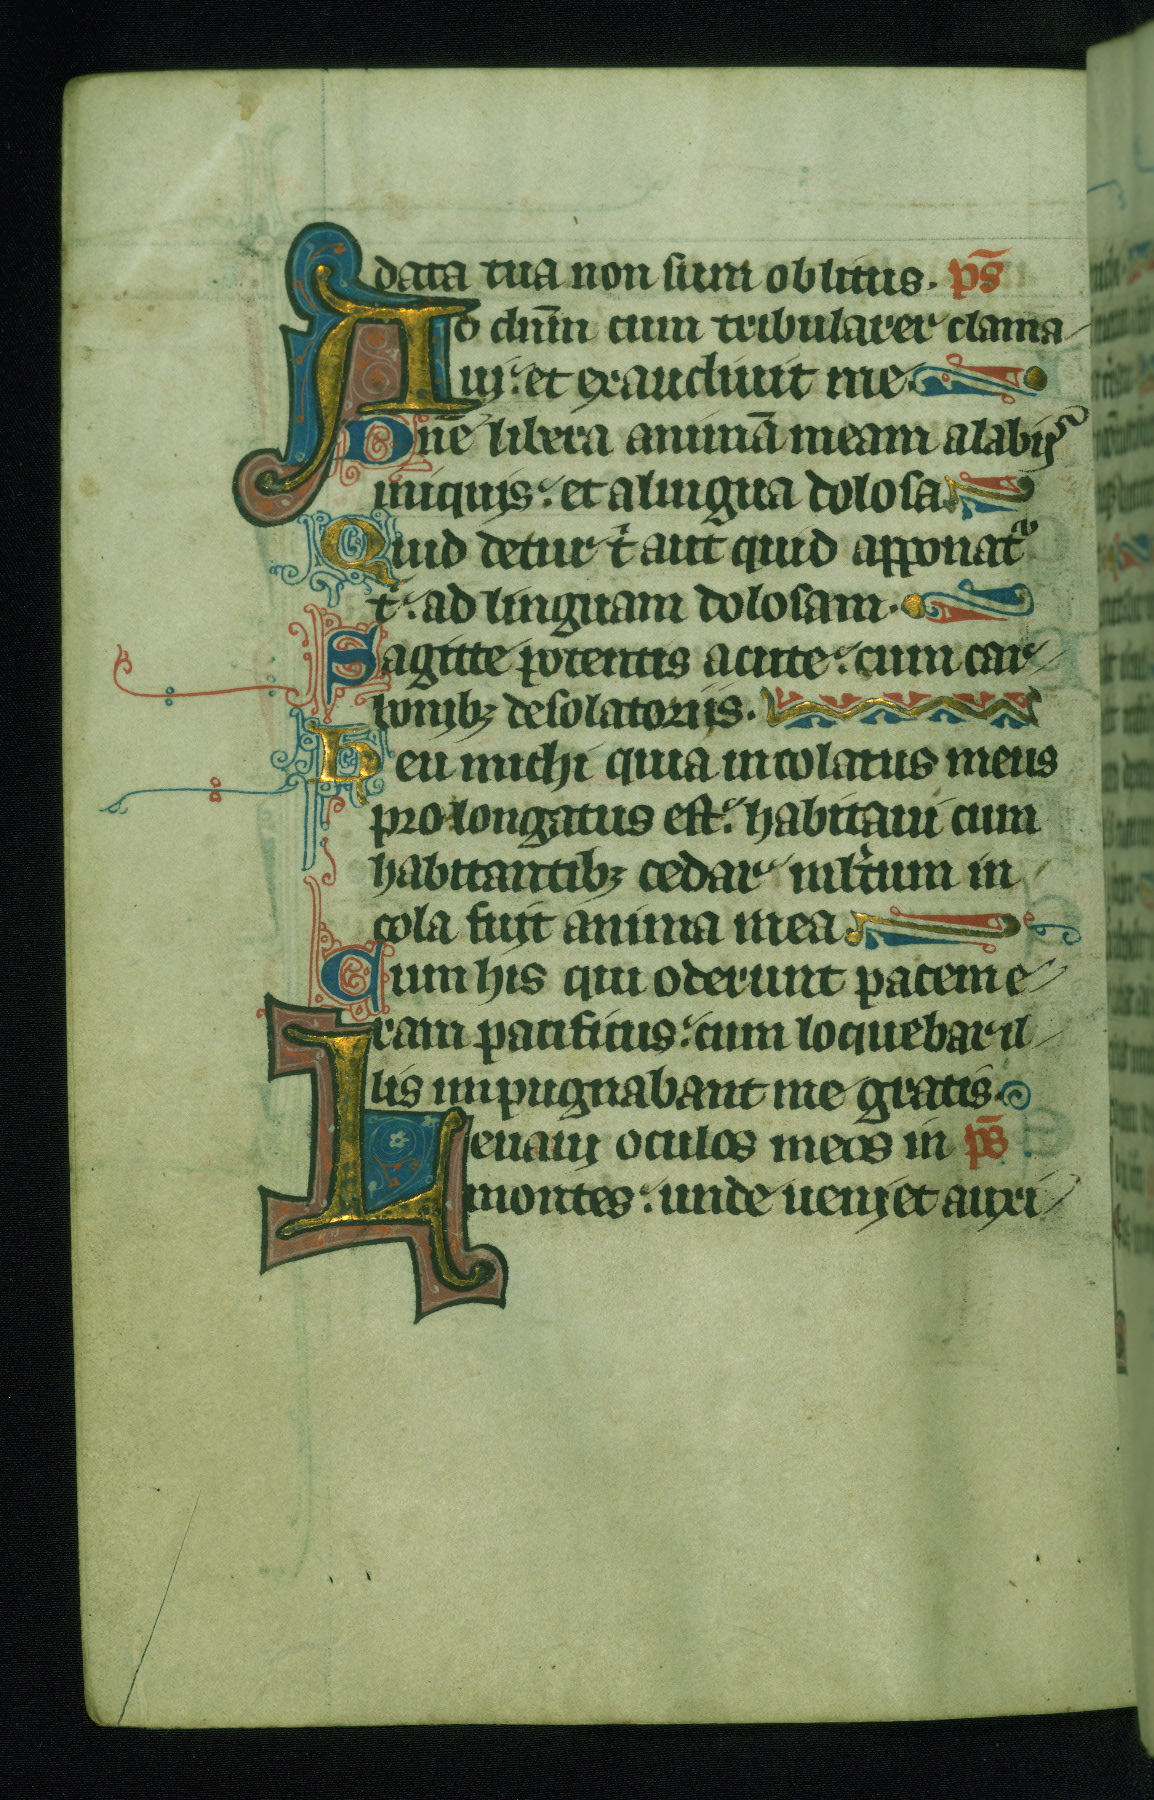 data tua non sum oblitus. ps̄
Ad dn̄m cum tribularer clama
uij: et exaudiuit me.
Dn̄e libera animā meam alabijs
iniquis: et alingua dolosa
Quid detur t̓ aut quid apponatᷣ
t̓: ad linguam dolosam.
Sagitte potentis acute: cum car
bonibꝫ desolatoriis.
Heu michi quia incolatus meus
prolongatus est: habitaui cum
habitantibꝫ cedar mlt̓um in
cola fuit anima mea
Cum his qui oderunt pacem e
ram pacificus: cum loquebar il
lis impugnabant me gratis.
Leuaui oculos meos in ps̄
montes: unde ueniet auxi